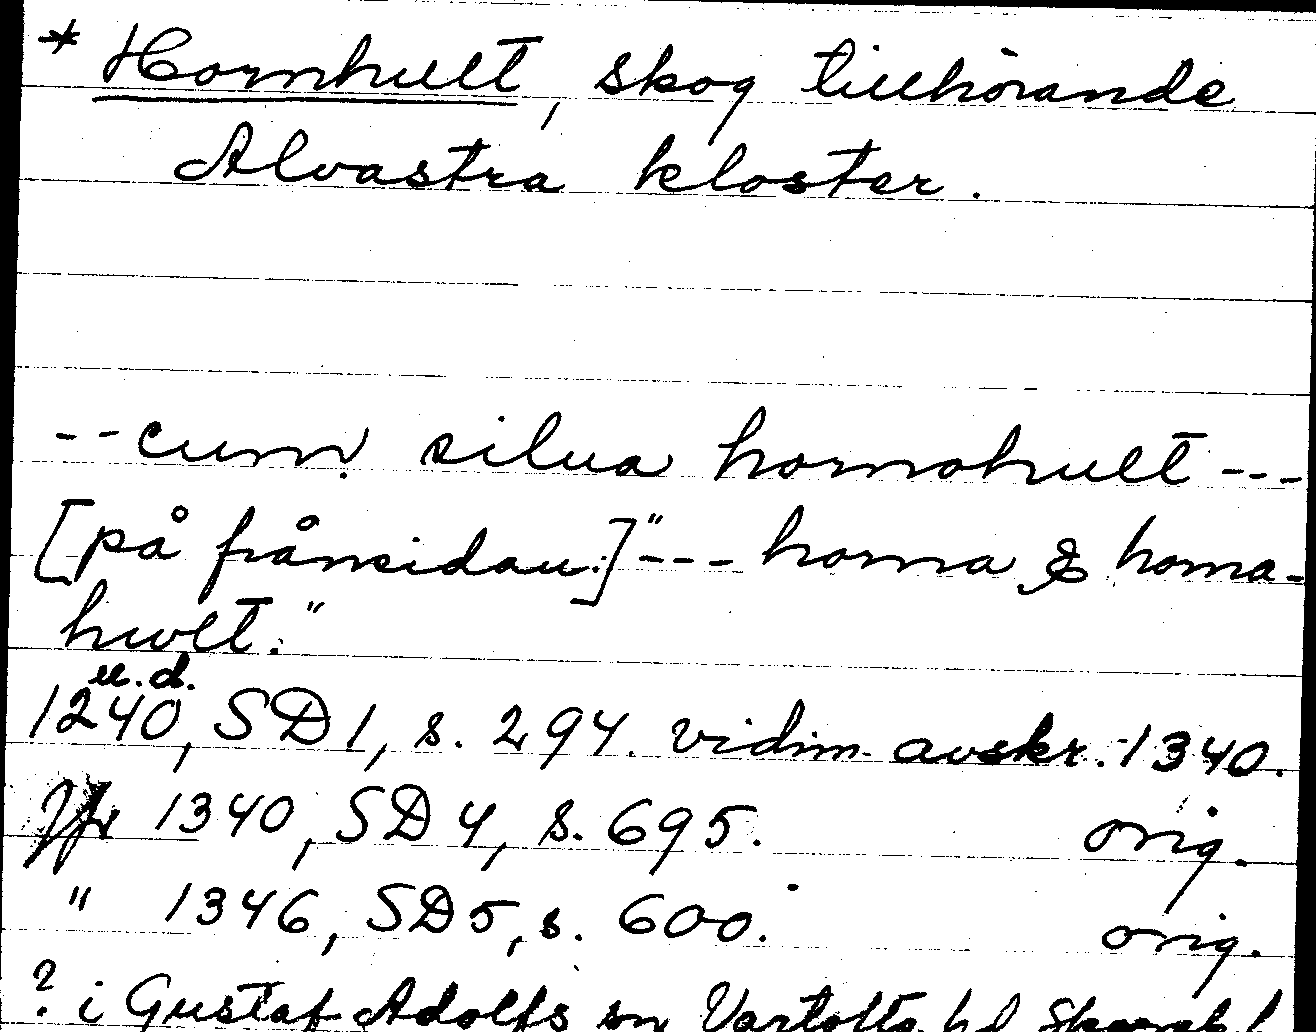 * Hornhult, skog tillhörande
Alvastra kloster.
--cum silua hornohult ---
[på frånsidan:]"--- horna & horna-
hwlt."
u.d.
1240, SD 1, s. 294. vidim. avskr. 1340.
Jfr 1340, SD 4, s. 695. orig.
" 1346, SD 5, s. 600. orig.
? i Gustaf Adolfs sn Vartofta hd